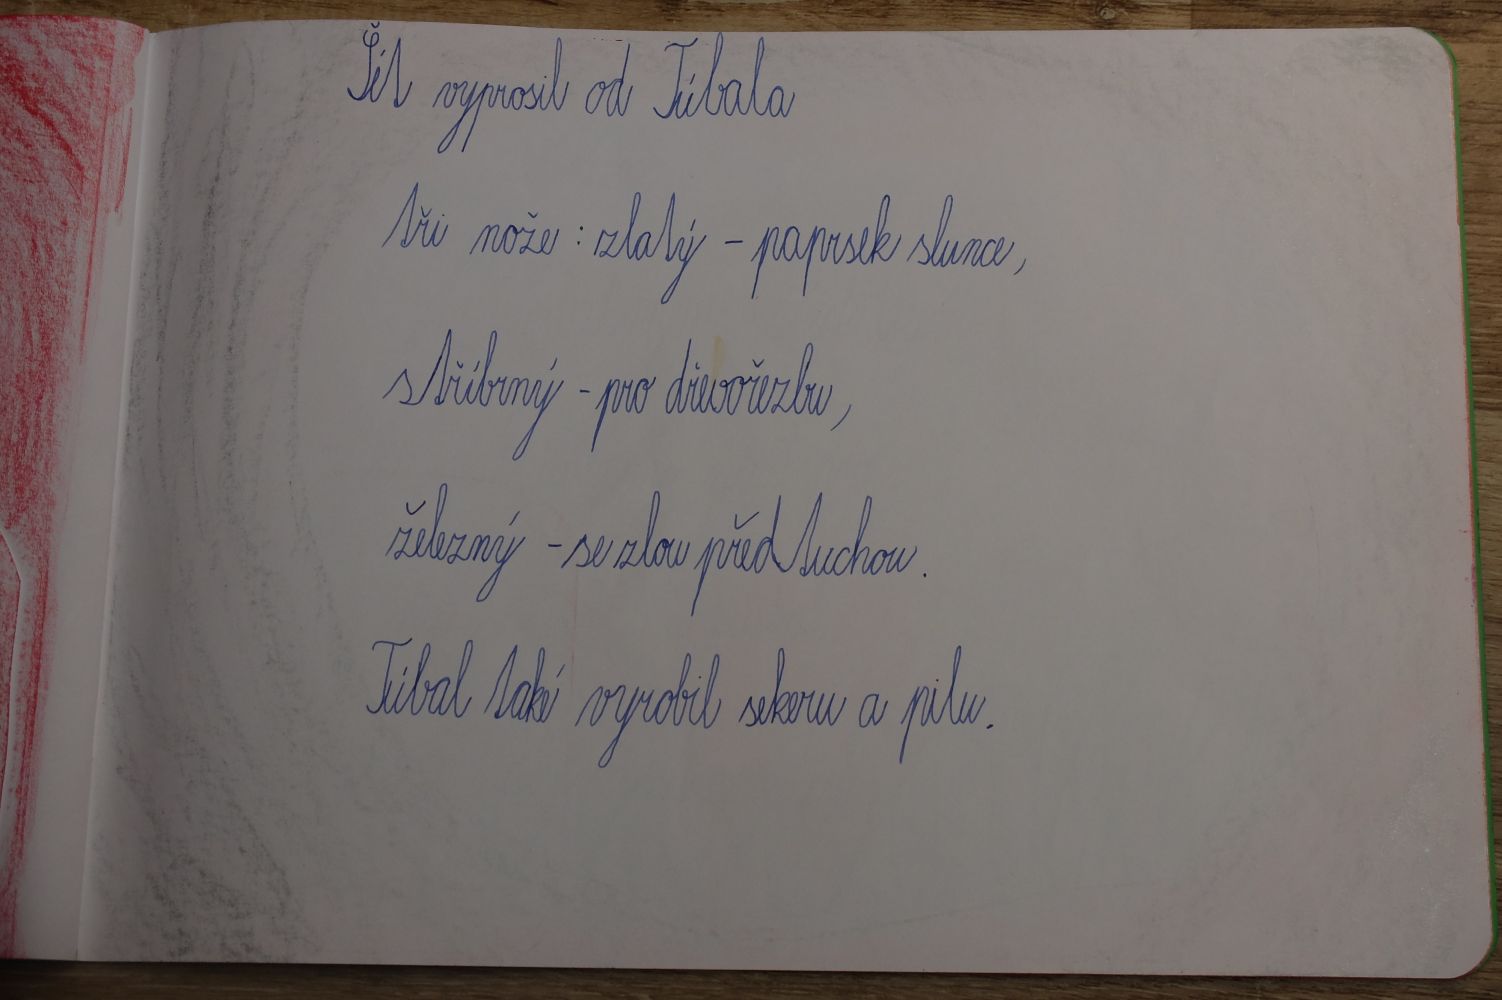 Šét vyprosil od Túbala
tři nože: zlatý - paprsek slunce,
stříbrný - pro dřevořezbu,
železný - se zlou před tuchou.
Túbal také vyrobil sekeru a pilu.